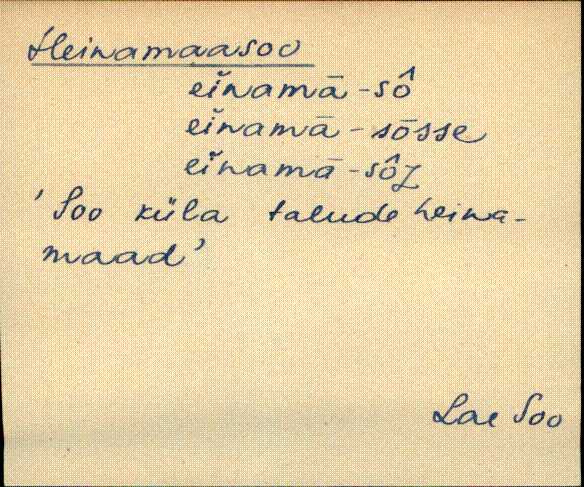 Heinamaasoo
eĭnamā-sô
eĭnamā-sōsse
eĭnamā-sôʒ
'Soo küla talude heina-
maad'
Lae Soo